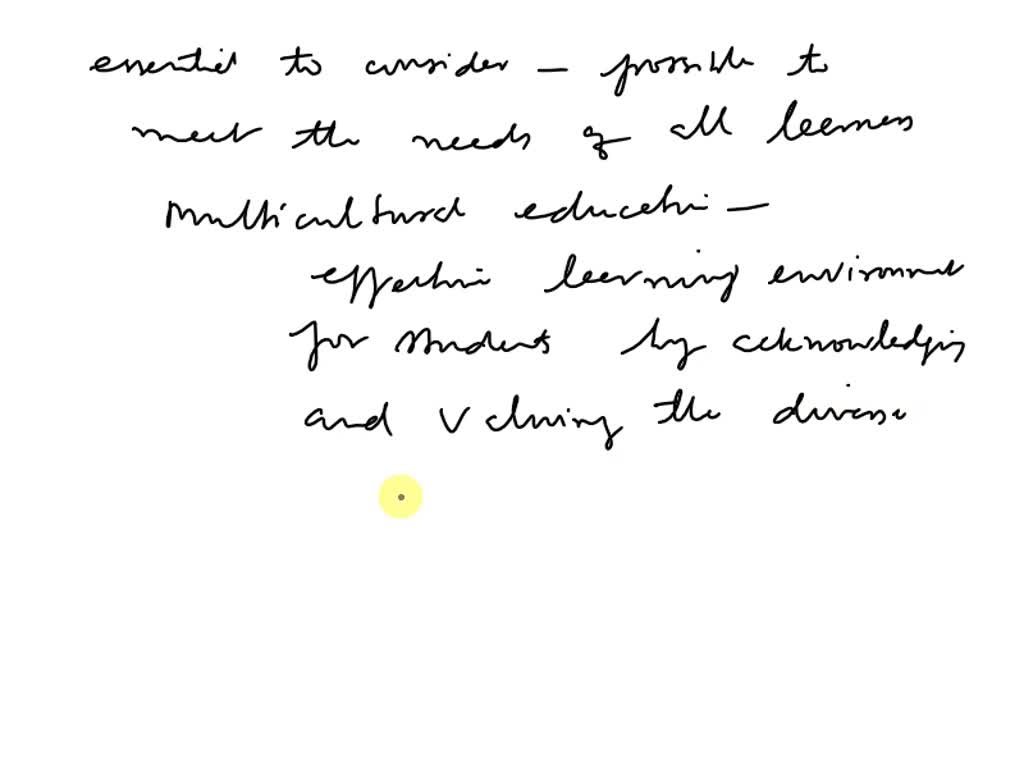 essential to consider – possible to
meet the needs of all learners
Multicultural education –
effective learning environment
for students by acknowledging
and valuing the diverse